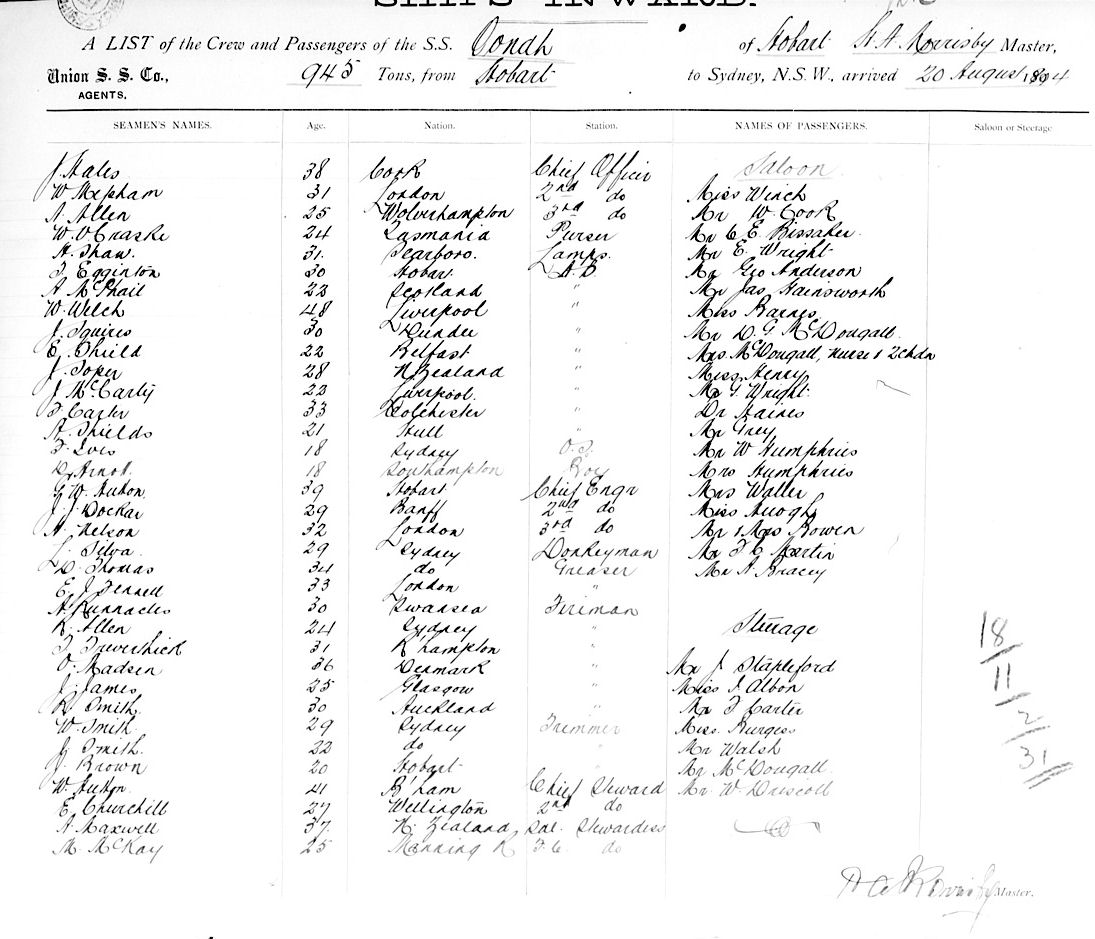 SHIPS INWARD.
A LIST of the Crew and Passengers of the S.S. Oonah of Hobart H. A. Morrisby Master,
Union S. S. Co., 945 Tons, from Hobart to Sydney, N.S.W., arrived 20 August 1894
AGENTS.
SEAMEN'S NAMES. Age. Nation. Station. NAMES OF PASSENGERS. Saloon or Steerage
J. Hales 38 Cork Chief Officer Saloon
W. Mepham 31 London 2nd do Miss Winch
A. Allen 25 Wolverhampton 3rd do Mr W. Cook
W. V. Craske 24 Tasmania Purser Mr C E Bissaker
H. Shaw. 31. Scarboro. Lamps. Mr E. Wright
T. Egginton 30 Hobart. AB Mr Geo Anderson
A McPhail 23 Scotland " Mr Jas Gainsworth
W. Welch 48 Liverpool " Miss Barnes
J. Squires 30 Dundee " Mr D. G. McDougall.
E. Shield 22 Belfast " Mrs McDougall, nurse & 2 chdn
J. Soper 28 N Zealand " Miss Henry
J. McCarty 23 Liverpool. " Mr G. Wright.
F Carter 33 Colchester " Dr Haines
A. Shields 21 Hull " Mr Grey
18 Sydney O.S. Mr W Humphries
D. Arnot. 18 Southampton Boy Mrs Humphries
G. W. Auton. 39 Hobart Chief Engr Mrs Waller
J. J. Dockar 29 Banff 2nd do Miss
A. Nelson 32 London 3rd do Mr & Mrs Bowen
L. Silva. 29 Sydney Donkeyman Mr F C Martin
D. Thomas 34 do Greaser Mr A Bracey
E. J. Fennell 33 London "
A. Runnacles 30 Swansea Fireman
R. Allen 24 Sydney " Steerage
31 R'hampton "
O. Madsen 36 Denmark " Mr J. Stapleford
J. James 25 Glasgow " Miss I. Albon
R. Smith. 30 Auckland Mr F Carter
W. Smith. 29 Sydney Trimmer Miss. Burgess
J. Smith. 22 do " Mr Walsh
J. Brown 20 Hobart " Mr McDougall.
W. Hutton. 41 B'ham Chief Steward Mr W. Driscoll
E. Churchill 27 Wellington 2nd do
A. Maxwell 37. N. Zealand Sal. Stewardess
M. McKay 25 Manning R F.C. do
18
11
2
31
H A Morrisby Master.